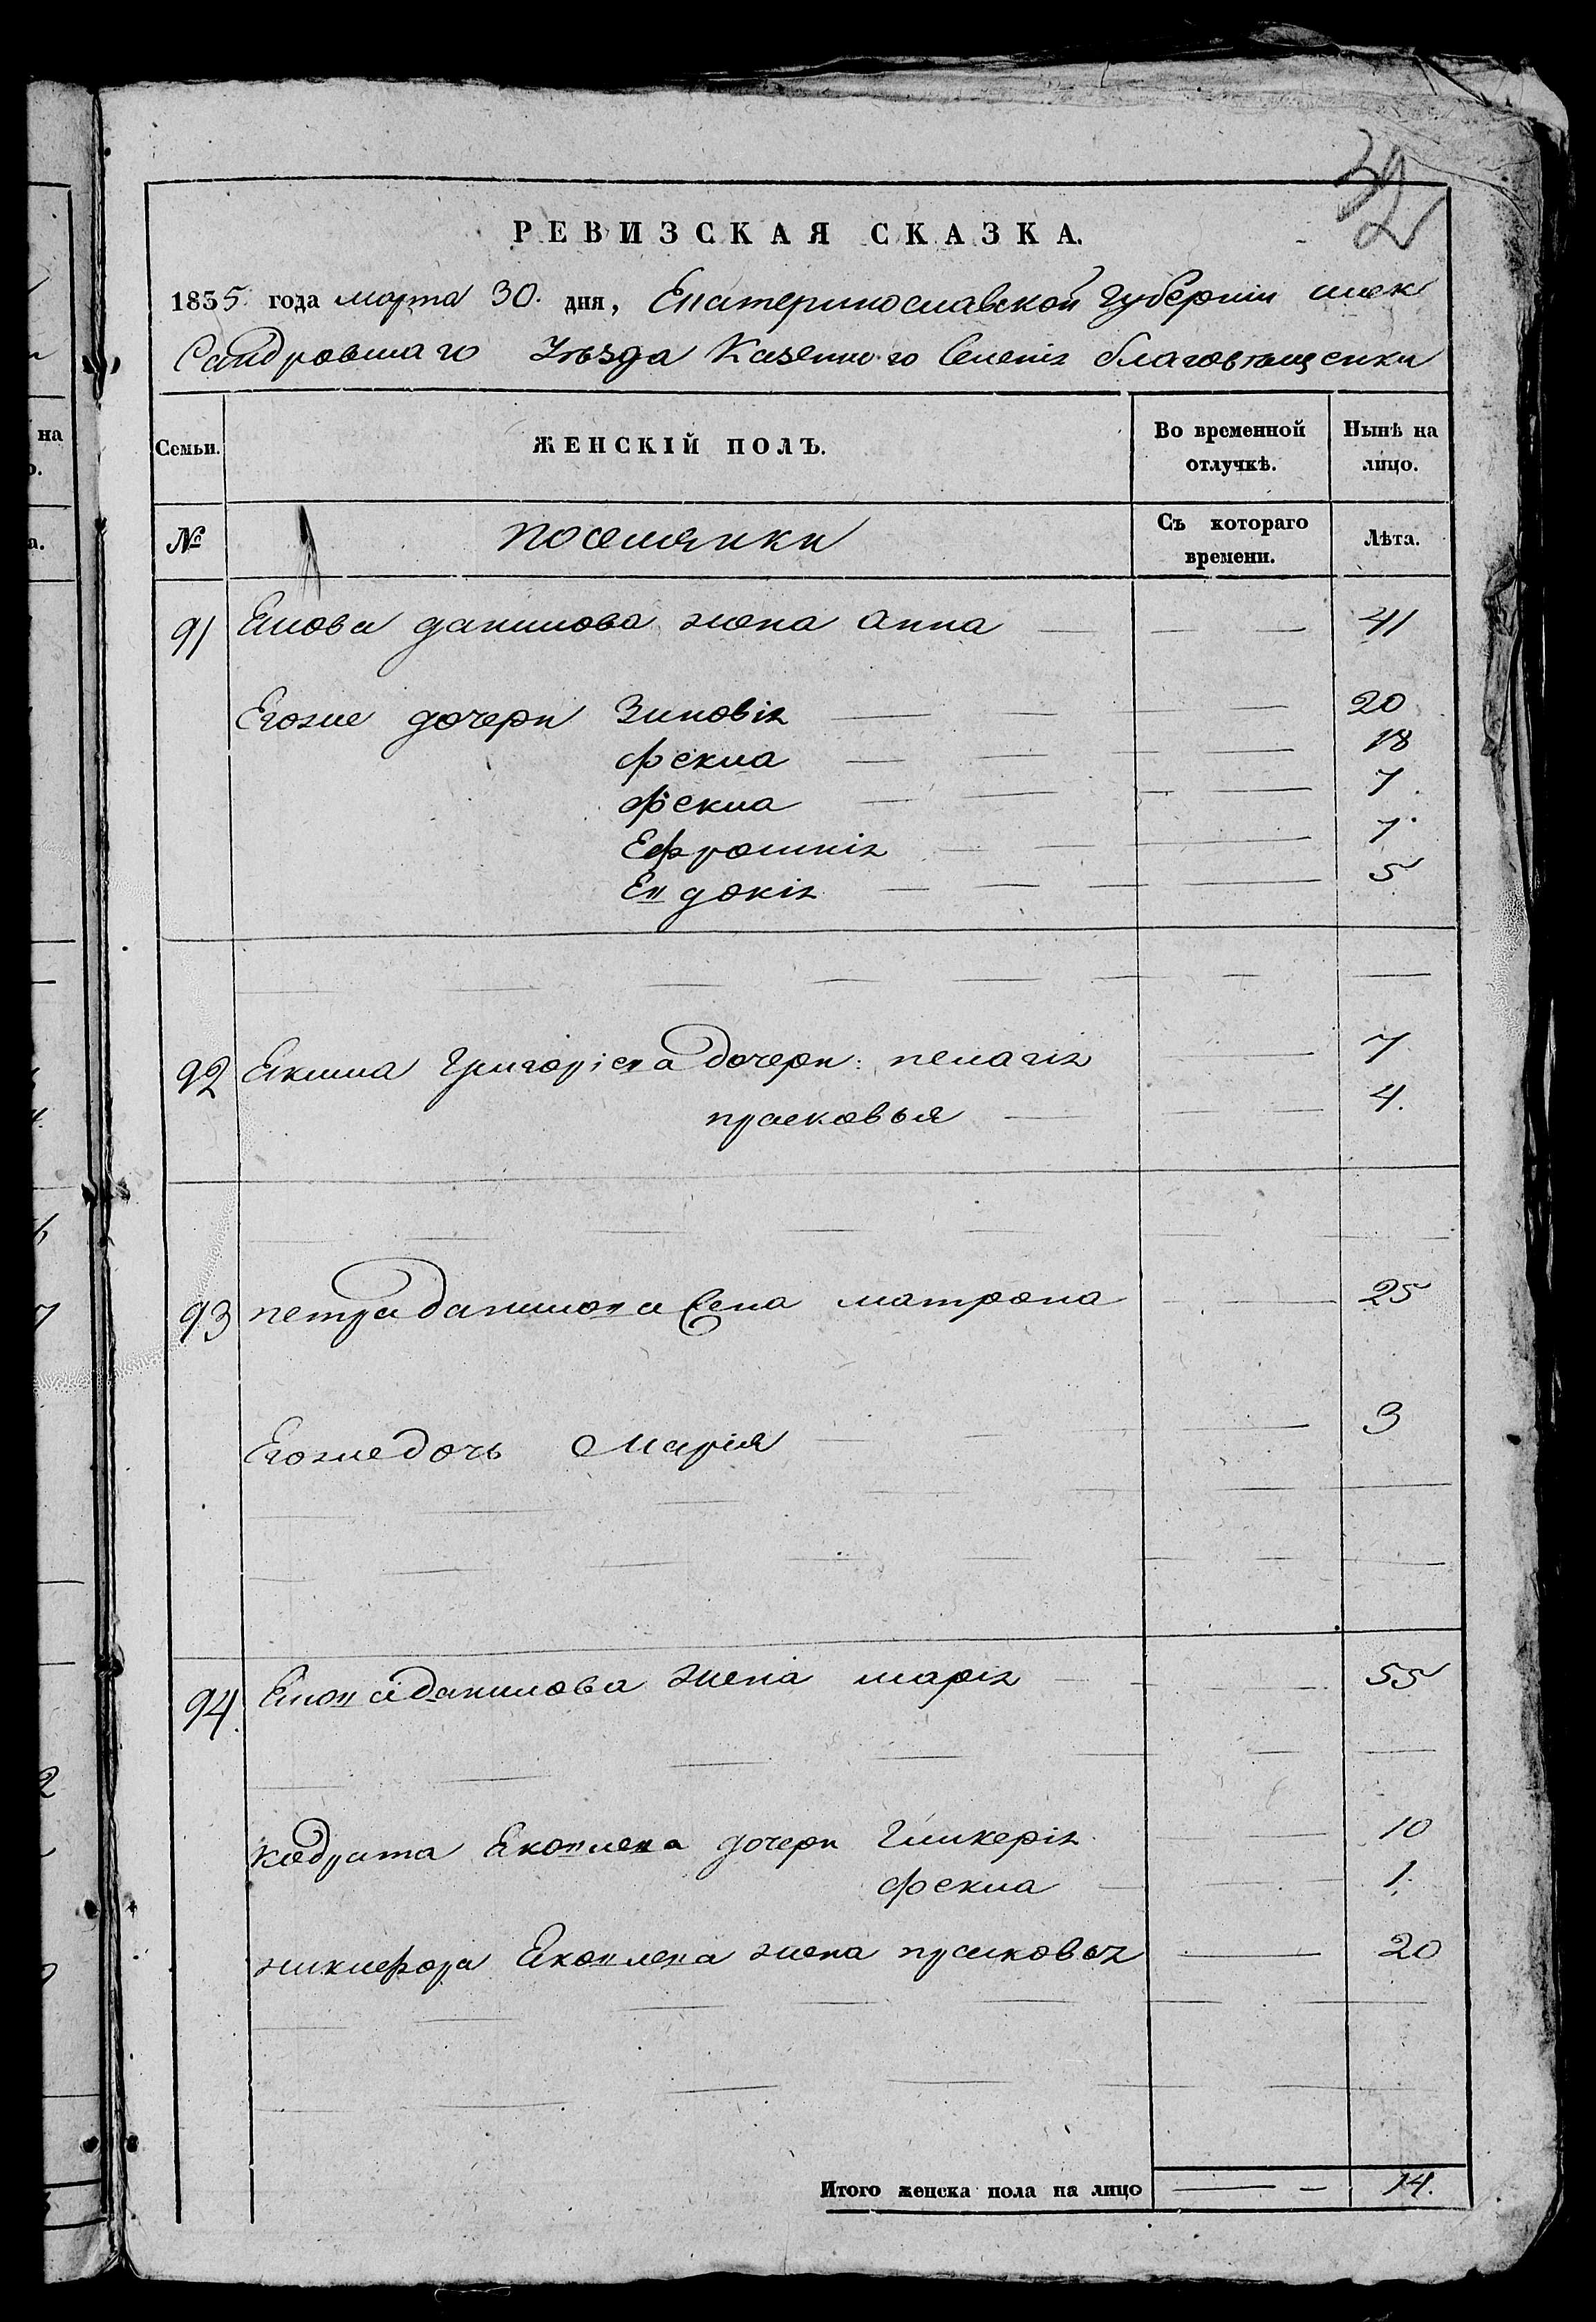 32
РЕВИЗСКАЯ СКАЗКА.
1835 года марта 30. дня, Екатеринославской Губернiи алек
Сандровшаго Уѣзда Казенного Селенiя благовѣщенки
Семьи. ЖЕНСКІЙ ПОЛЪ. Во временной отлучкѣ. Нынѣ на лицо.
№ поселянки Съ котораго времени. Лѣта.
91 данилова жена анна 41
Егоже дочери Зиновiя 20
фекла 18
фекла 7
Ефросинiя 7
Евдокiя 5
92 Екима Григорiева дочери: пелагiя 7
прасковья 4.
93 петра данилова Жена матрона 25
Егоже дочь Марiя 3
94. данилова жена марiя 55
кодрата Яковлева дочери Гликерiя 10
фекла 1.
никифора Яковлева жена прасковья 20
Итого женска пола на лицо 14.
на
а.